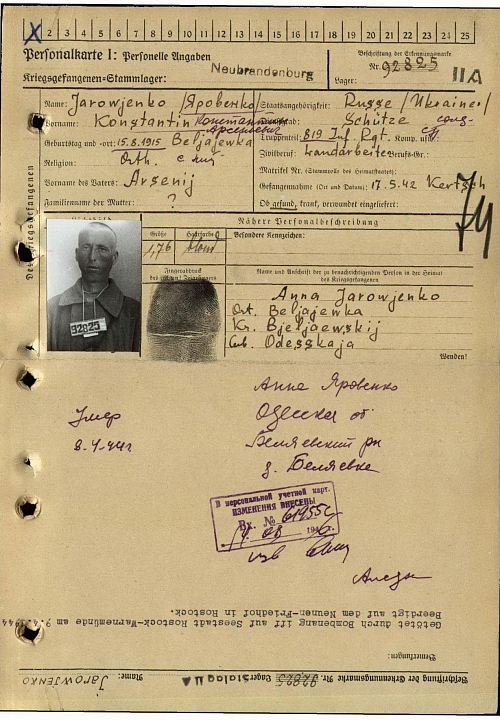 X 2 3 4 5 6 7 8 9 10 11 12 13 14 15 16 17 18 19 20 21 22 23 24 25
Personalkarte I: Personelle Angaben
Kriegsgefangenen-Stammlager: Neubrandenburg
Beschriftung der Erkennungsmarke
Nr. 92825
Lager: IIA
Des Kriegsgefangenen
Name: Jarowjenko /Яровенко/
Vorname: Konstantin Константин
Арсеньевич
Geburtstag und -ort: 15.8.1915 Beljajewka
Religion: Orth.
Vorname des Vaters: Arsenij
Familienname der Mutter: ?
Staatsangehörigkeit: Russe /Ukrainer/
Schütze
Truppenteil: 819 Inf. Rgt. Komp. usw.:
Zivilberuf: Landarbeiter Berufs-Gr.:
Matrikel Nr. (Stammrolle des Heimatstaates):
Gefangennahme (Ort und Datum): 17.5.42 Kertsch
Ob gesund, krank, verwundet eingeliefert:
74
Nähere Personalbeschreibung
Größe
Haarfarbe
Besondere Kennzeichen:
1,76
blond
Fingerabdruck
des (rechten) Zeigefingers
Name und Anschrift der zu benachrichtigenden Person in der Heimat
des Kriegsgefangenen
92825
Anna Jarowjenko
Ort. Beljajewka
Kr. Bjeljaewskij
Odesskaja
Wenden!
Анна Яровенко
Одесская об
Беляевский рн
д. Беляевка
Умер
В персональной учетной карт.
ИЗМЕНЕНИЯ ВНЕСЕНЫ
Вх. №
Getötet durch Bombenangriff auf Seestadt Rostock-Warnemünde am 9.4.1944
Beerdigt auf dem Neuen-Friedhof in Rostock.
Bemerkungen:
Beschriftung der Erkennungsmarke Nr. 92825 Lager: Stalag IIA Name: JAROWJENKO